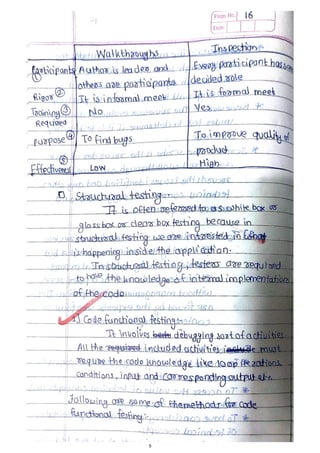 Page No. 16
Date
Walkthroughs Inspection
① Participants Author is leader and others are participants Every participant has some decided role
Rigor ② It is informal meet It is formal meet
Training ③ Required No Yes
Purpose ④ To find bugs To improve quality of product
⑤ Effectiveness Low High
Structural testing:-
It is often referred to as white box or
glass box or clear box testing because in
structural testing we are interested in what
is happening inside the application.
In structural testing, testers are required
to have the knowledge of internal implementations
of the code
1) Code functional testing:-
It involves debugging sort of activities
All the included activities must
require the code knowledge like loop iterations
conditions, input and corresponding output etc.
following are some of the methods for code
functional testing:-
5